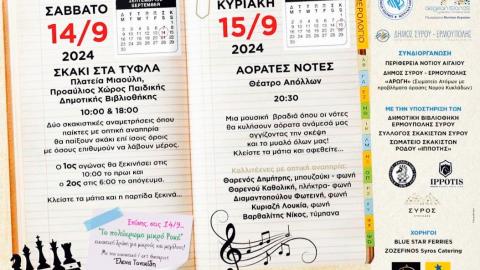 ΣΑΒΒΑΤΟ
14/9
2024
ΣΚΑΚΙ ΣΤΑ ΤΥΦΛΑ
Πλατεία Μιαούλη,
Προαύλιος Χώρος Παιδικής
Δημοτικής Βιβλιοθήκης
10:00 & 18:00
Δύο σκακιστικές αναμετρήσεις όπου
παίκτες με οπτική αναπηρία
θα παίξουν σκάκι επί ίσοις όροις
με όσους επιθυμούν να λάβουν μέρος.
Ο 1ος αγώνας θα ξεκινήσει στις
10:00 το πρωι και
ο 2ος στις 6:00 το απόγευμα.
Κλείστε τα μάτια και η παρτίδα ξεκινά...
Επίσης, στις 14/9...
"Το πολύχρωμο μικρό Ροκέ"
Έλενα Τονικίδη
ΚΥΡΙΑΚΗ
15/9
2024
ΑΟΡΑΤΕΣ ΝΟΤΕΣ
Θέατρο Απόλλων
20:30
Μια μουσική βραδιά όπου οι νότες
θα κυλήσουν αόρατα ανάμεσά μας
αγγίζοντας την σκέψη
και το μυαλό όλων μας!
Κλείστε τα μάτια και αφεθείτε...
Καλλιτέχνες με οπτική αναπηρία:
Θαρενός Δημήτρης, μπουζούκι - φωνή
Θαρενού Καθολική, πλήκτρα- φωνή
Διαμαντοπούλου Φωτεινή, φωνή
Κυριαζή Λουκία, φωνή
Βαρθαλίτης Νίκος, τύμπανα
ΗΜΕΡΟΛΟΓΙΟ
ΔΗΜΟΣ ΣΥΡΟΥ - ΕΡΜΟΥΠΟΛΗΣ
ΣΥΝΔΙΟΡΓΑΝΩΣΗ
ΠΕΡΙΦΕΡΕΙΑ ΝΟΤΙΟΥ ΑΙΓΑΙΟΥ
ΔΗΜΟΣ ΣΥΡΟΥ - ΕΡΜΟΥΠΟΛΗΣ
«ΑΡΩΓΗ» (Σωματείο Ατόμων με
προβλήματα όρασης Νομού Κυκλάδων)
ΜΕ ΤΗΝ ΥΠΟΣΤΗΡΙΞΗ ΤΩΝ
ΔΗΜΟΤΙΚΗ ΒΙΒΛΙΟΘΗΚΗ
ΕΡΜΟΥΠΟΛΗΣ ΣΥΡΟΥ
ΣΥΛΛΟΓΟΣ ΣΚΑΚΙΣΤΩΝ ΣΥΡΟΥ
ΣΩΜΑΤΕΙΟ ΣΚΑΚΙΣΤΩΝ
ΡΟΔΟΥ «ΙΠΠΟΤΗΣ»
IPPOTIS
ΣΥΡΟΣ
ΧΟΡΗΓΟΙ
BLUE STAR FERRIES
ZOZEFINOS Syros Catering